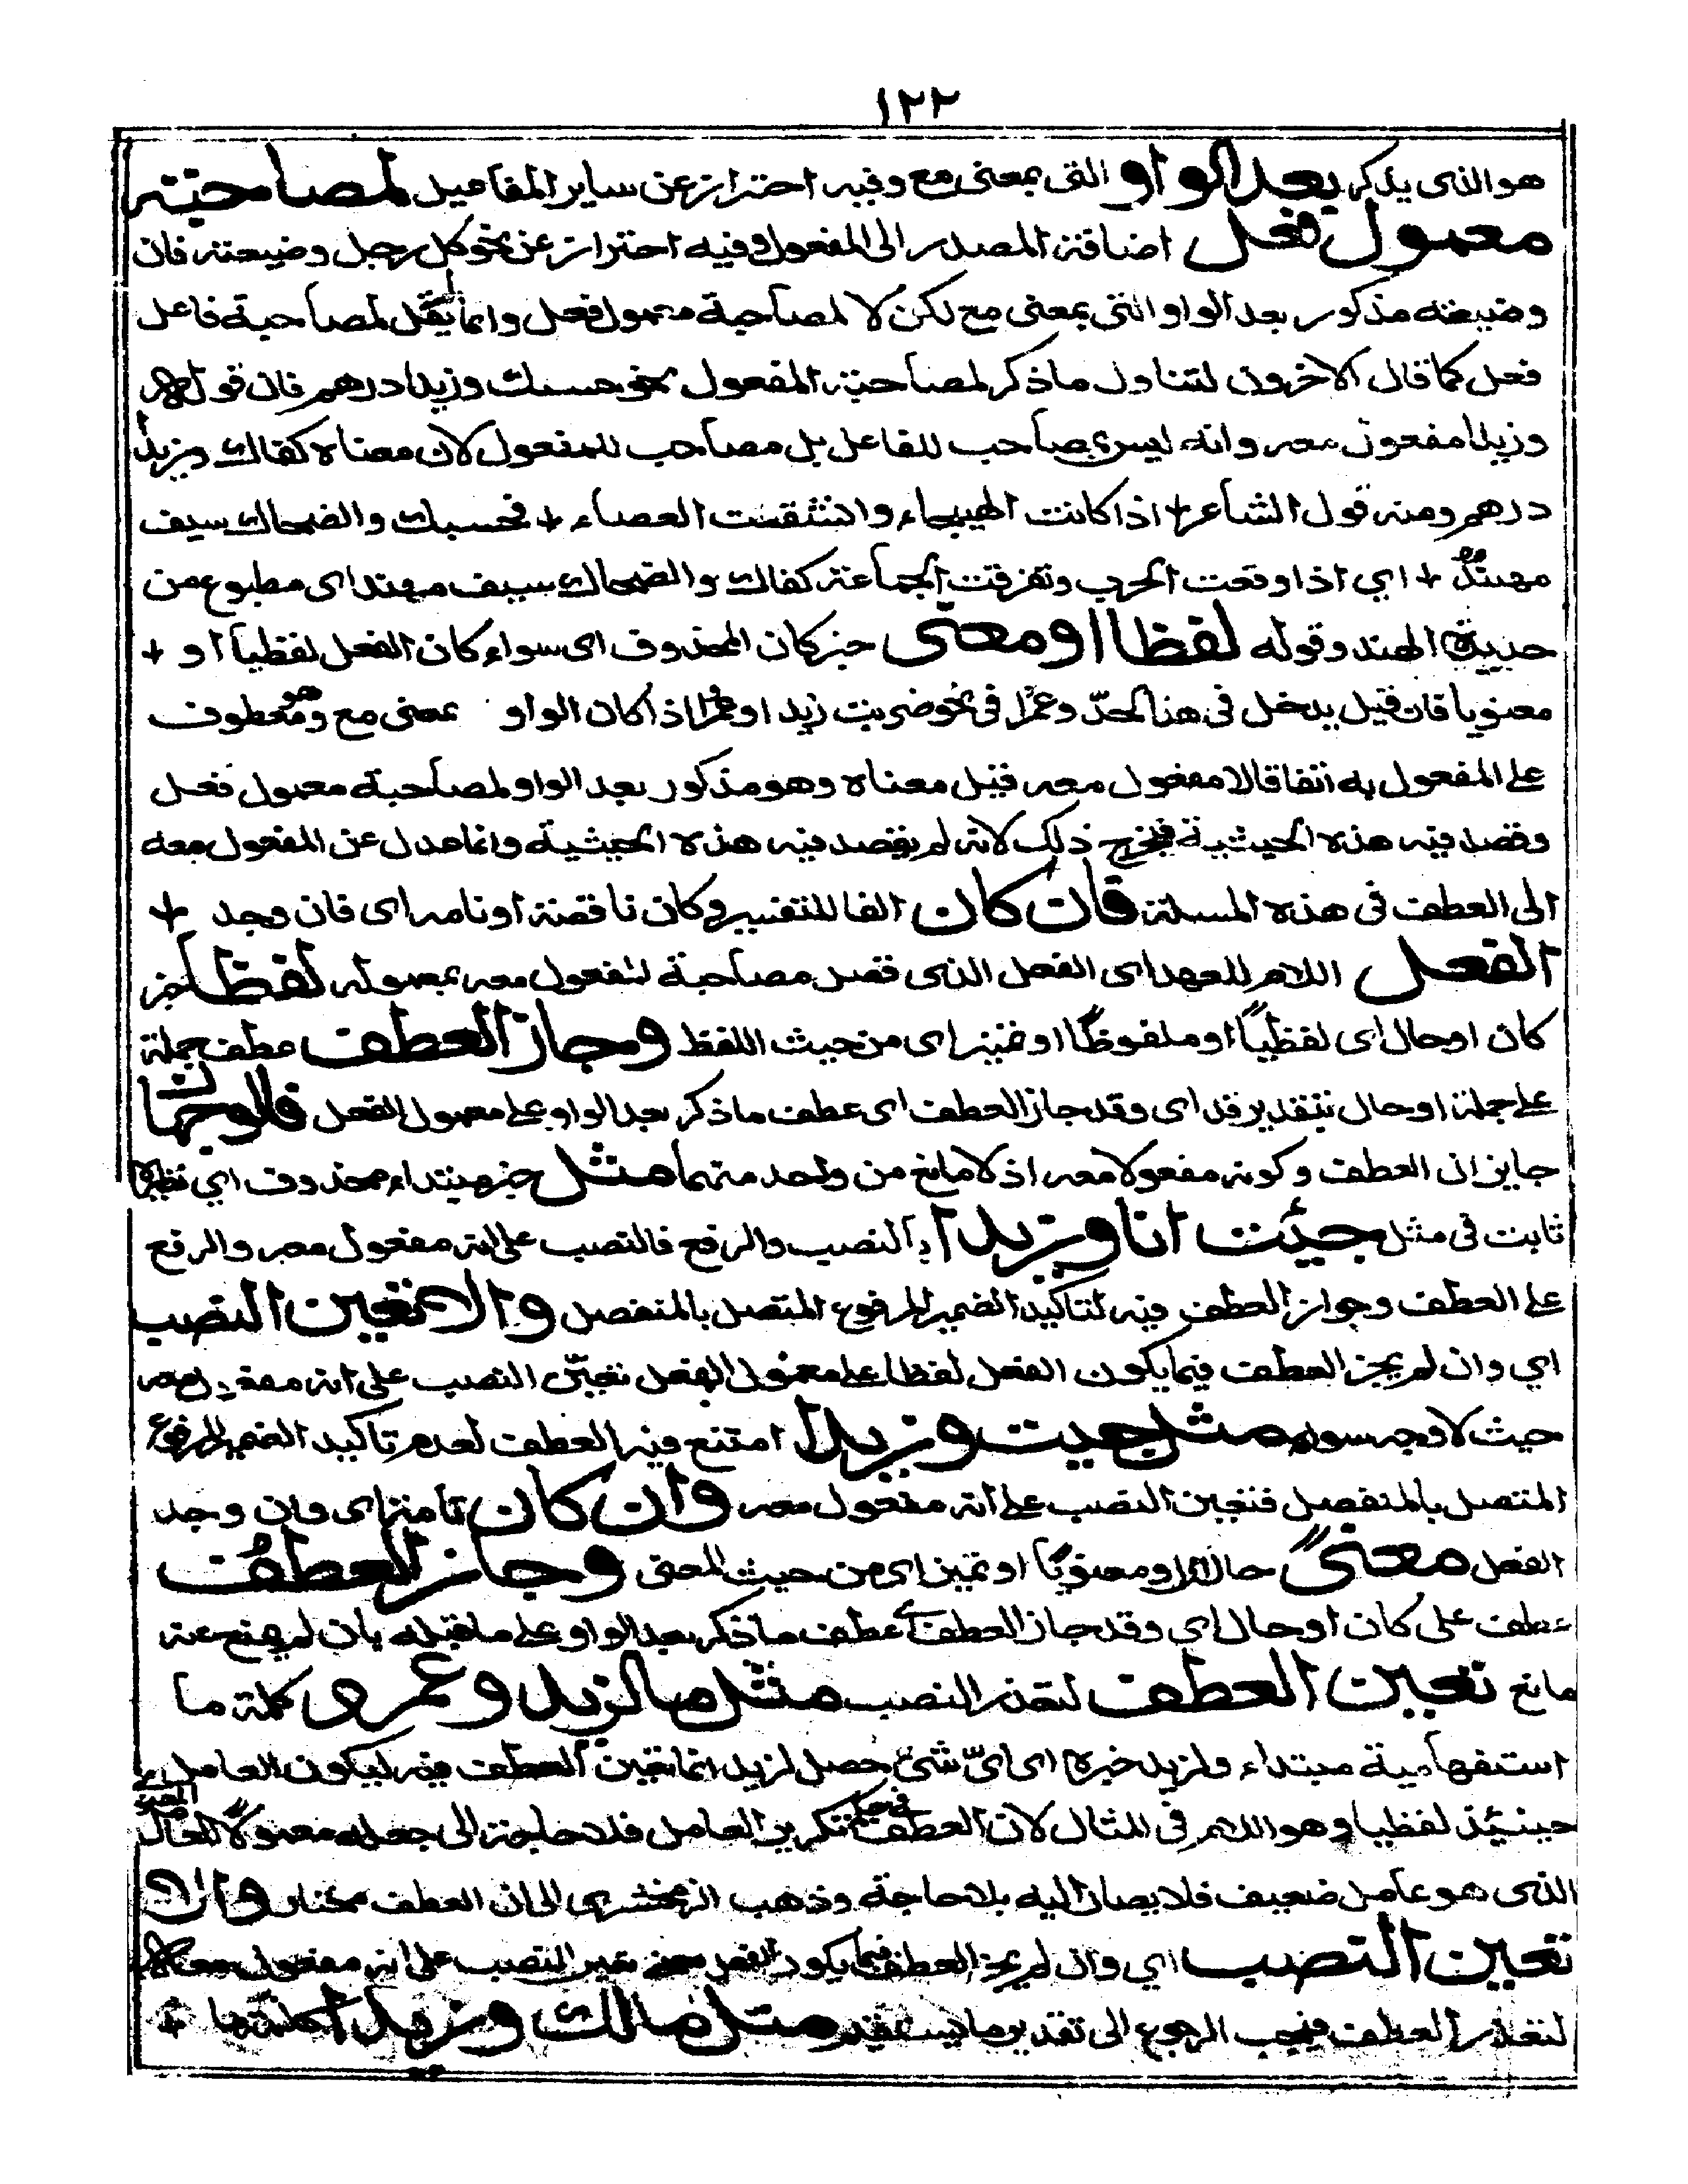 ١٢٢
هو الذى يذكر بعد الواو التى بمعنى مع وفيه احتراز عن ساير المفاعيل لمصاحبته
معمول فعل اضافة المصدر الى المفعول وفيه احتراز عن نحو كل رجل وضيعته فان
وضيعته مذكور بعد الواو التى بمعنى مع لكن لا لمصاحبة معمول فعل وانما لم يقل لمصاحبة فاعل
فعل كما قال الاخرون لتناول ما ذكر لمصاحبة المفعول نحو حسبك وزيدا درهم فان قولهم
وزيدا مفعول معه وانه ليس بمصاحب للفاعل بل مصاحب للمفعول لان معناه كفاك وزيدا
درهم ومنه قول الشاعر + اذا كانت الهيجاء وانشقت العصاء + فحسبك والضحاك سيف
مهندٌ + اي اذا وقعت الحرب وتفرقت الجماعة كفاك والضحاك سيف مهند اى مطبوع من
حديدة الهند وقوله لفظا او معنى خبر كان المحذوف اى سواء كان الفعل لفظيا او +
معنويا فان قيل يدخل فى هذا الحدّ وعمرًا فى نحو ضربت زيدا وعمرًا اذا كان الواو بمعنى مع وهو معطوف
على المفعول به اتفاقا لا مفعول معه قيل معناه وهو مذكور بعد الواو لمصاحبة معمول فعل
وقصد فيه هذه الحيثية فيخرج ذلك لانه لم يقصد فيه هذه الحيثية وانما عدل عن المفعول معه
الى العطف فى هذه المسئلة فان كان الفا للتفسير وكان ناقصة او تامه اى فان وجد +
الفعل اللام للعهد اى الفعل الذى قصد مصاحبة المفعول معه بمعموله لفظا خبر
كان او حال اى لفظيًا او ملفوظًا او تمييز اى من حيث اللفظ وجاز العطف عطف جملة
على جملة او حال بتقدير قد اى وقد جاز العطف اى عطف ما ذكر بعد الواو على معمول الفعل فالوجهان
جايز ان العطف وكونه مفعولا معه اذ لا مانع من واحد منهما مثل خبر مبتداء محذوف اي نظيره
ثابت فى مثل جئت انا وزيدا بالنصب والرفع فالنصب على انه مفعول معه والرفع
على العطف وجواز العطف فيه لتاكيد الضمير المرفوع المتصل بالمنفصل والا تعين النصب
اي وان لم يجز العطف فيما يكون الفعل لفظا على معمول الفعل تعيّن النصب على انه مفعول معه
حيث لا وجه سواه مثل جيت وزيدا امتنع فيه العطف لعدم تاكيد الضمير المرفوع
المتصل بالمنفصل فتعين النصب على انه مفعول معه وان كان تامة اى وان وجد
الفعل معنىً حال اى ومعنويًا او تمييز اى من حيث المعنى وجاز العطف
عطف على كان او حال اي وقد جاز العطف اى عطف ما ذكر بعد الواو على ما قبله بان لم يمنع عنه
مانع تعين العطف لتعذر النصب مثل ما لزيد وعمرو كلمة ما
استفهامية مبتداء ولزيد خبره اى اىّ شئ حصل لزيد انما تعين العطف فيه ليكون العامل
حينئذ لفظيا وهو اللام فى المثال لان العطف فى حكم تكرير العامل فلا حاجة الى جعله معمولاً للعامل المعنوى
الذى هو عامل ضعيف فلا يصار اليه بلا حاجة وذهب الزمخشرى الى ان العطف مختار والا
تعين النصب اي وان لم يجز العطف فيما يكون الفعل معنى تعين النصب على انه مفعول معه
لتعذر العطف فيجب الرجوع الى تقدير ما يستفيد مثل مالك وزيدا كلمة ما +